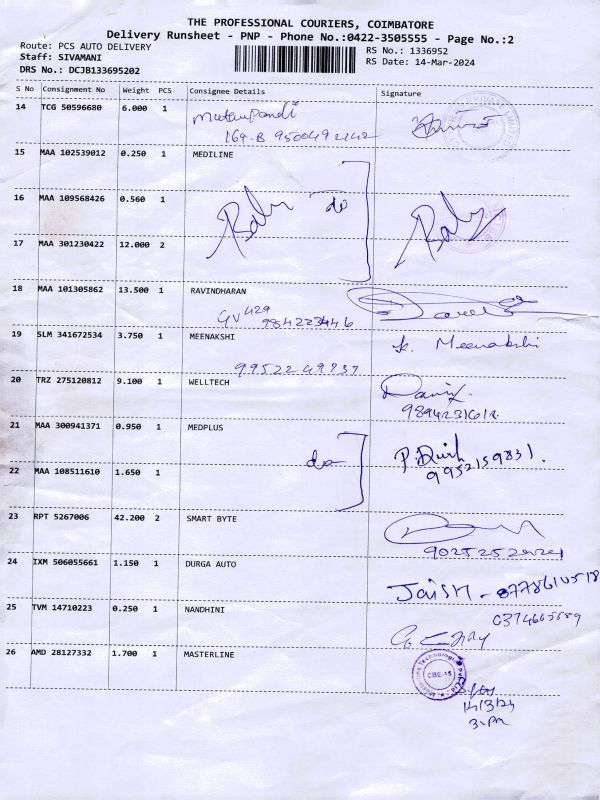 THE PROFESSIONAL COURIERS, COIMBATORE
Delivery Runsheet - PNP - Phone No.:0422-3505555 - Page No.:2
Route: PCS AUTO DELIVERY
RS No.: 1336952
Staff: SIVAMANI
RS Date: 14-Mar-2024
DRS No.: DCJB133695202
S No Consignment No Weight PCS Consignee Details Signature
14 TCG 50596680 6.000 1
169-B 9500492142
15 MAA 102539012 0.250 1 MEDILINE
16 MAA 109568426 0.560 1
do
Babu Babu
17 MAA 301230422 12.000 2
18 MAA 101305862 13.500 1 RAVINDHARAN
GV 429
9842223446
19 SLM 341672534 3.750 1 MEENAKSHI k. Meenakshi
9952249737
20 TRZ 275120812 9.100 1 WELLTECH
9894231612
21 MAA 300941371 0.950 1 MEDPLUS
do
9952159831.
22 MAA 108511610 1.650 1
23 RPT 5267006 42.200 2 SMART BYTE
24 IXM 506055661 1.150 1 DURGA AUTO
25 TVM 14710223 0.250 1 NANDHINI
26 AMD 28127332 1.700 1 MASTERLINE
CBE-15
14/3/24
3.PM